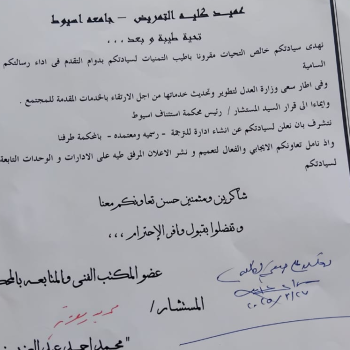 عميد كلية التمريض - جامعه اسيوط
تحية طيبة و بعد ...
نهدى سيادتكم خالص التحيات مقرونا باطيب التمنيات لسيادتكم بدوام التقدم فى اداء رسالتكم
السامية
وفى اطار سعى وزارة العدل لتطوير وتحديث خدماتها من اجل الارتقاء بالخدمات المقدمة للمجتمع .
وايماءا الى قرار السيد المستشار / رئيس محكمة استئناف اسيوط
نتشرف بان نعلن لسيادتكم عن انشاء ادارة للترجمة - رسميه ومعتمده - بالمحكمة طرفنا
واذ نامل تعاونكم الايجابي والفعال لتعميم و نشر الاعلان المرفق طيه على الادارات و الوحدات التابعة
لسيادتكم
شاكرين ومثمنين حسن تعاونكم معنا
وتفضلوا بقبول وافر الإحترام ،،،
عضو المكتب الفنى والمتابعه بالمحك
المستشار /
"محمد احمد عبد العزيز"